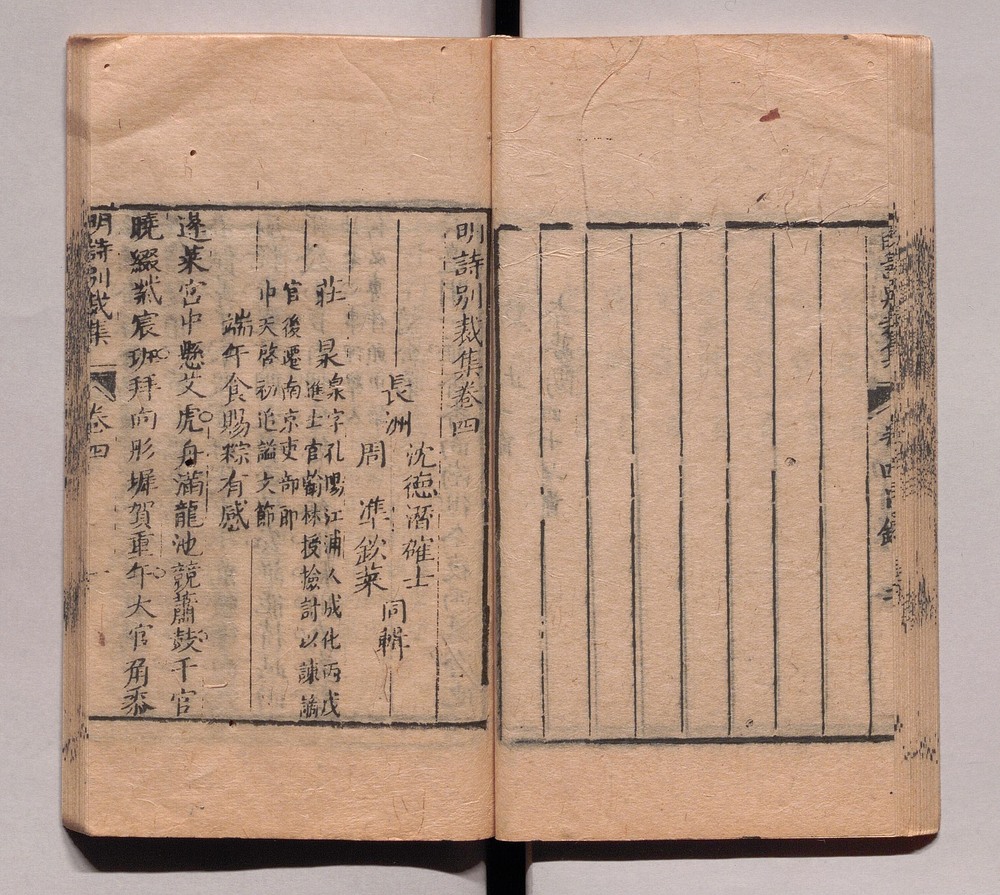 明詩別裁集 卷四目錄
明詩別裁集卷四
長洲
沈德潛確士
周準欽萊
同輯
莊㫤
㫤字孔暘江浦人成化丙戌
進士官翰林授檢討以諫謫
官後遷南京吏部郎
中天啓初追諡文節
端午食賜粽有感
蓬萊宮中懸艾虎舟滿龍池競簫鼓千官
曉綴紫宸班拜向彤墀賀重午大官角黍
明詩別裁集 卷四